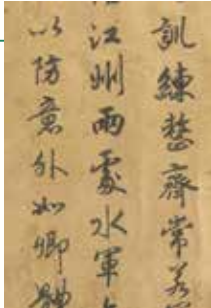 訓練整齊常若
江州兩處水軍
以防意外如卿